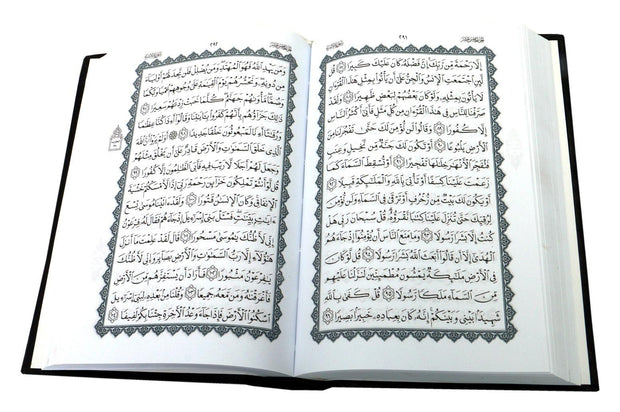 سُورَةُ الإِسْرَاءِ ٢٩١ الجُزْءُ الخَامِسَ عَشَرَ
إِلَّا رَحْمَةً مِّن رَّبِّكَ إِنَّ فَضْلَهُۥ كَانَ عَلَيْكَ كَبِيرًا ٨٧ قُل
لَّئِنِ ٱجْتَمَعَتِ ٱلْإِنسُ وَٱلْجِنُّ عَلَىٰٓ أَن يَأْتُوا۟ بِمِثْلِ هَٰذَا ٱلْقُرْءَانِ
لَا يَأْتُونَ بِمِثْلِهِۦ وَلَوْ كَانَ بَعْضُهُمْ لِبَعْضٍ ظَهِيرًا ٨٨ وَلَقَدْ
صَرَّفْنَا لِلنَّاسِ فِى هَٰذَا ٱلْقُرْءَانِ مِن كُلِّ مَثَلٍ فَأَبَىٰٓ أَكْثَرُ ٱلنَّاسِ
إِلَّا كُفُورًا ٨٩ وَقَالُوا۟ لَن نُّؤْمِنَ لَكَ حَتَّىٰ تَفْجُرَ لَنَا مِنَ
ٱلْأَرْضِ يَنۢبُوعًا ٩٠ أَوْ تَكُونَ لَكَ جَنَّةٌ مِّن نَّخِيلٍ وَعِنَبٍ
فَتُفَجِّرَ ٱلْأَنْهَٰرَ خِلَٰلَهَا تَفْجِيرًا ٩١ أَوْ تُسْقِطَ ٱلسَّمَآءَ كَمَا
زَعَمْتَ عَلَيْنَا كِسَفًا أَوْ تَأْتِىَ بِٱللَّهِ وَٱلْمَلَٰٓئِكَةِ قَبِيلًا ٩٢
أَوْ يَكُونَ لَكَ بَيْتٌ مِّن زُخْرُفٍ أَوْ تَرْقَىٰ فِى ٱلسَّمَآءِ وَلَن نُّؤْمِنَ
لِرُقِيِّكَ حَتَّىٰ تُنَزِّلَ عَلَيْنَا كِتَٰبًا نَّقْرَؤُهُۥ قُلْ سُبْحَانَ رَبِّى هَلْ
كُنتُ إِلَّا بَشَرًا رَّسُولًا ٩٣ وَمَا مَنَعَ ٱلنَّاسَ أَن يُؤْمِنُوٓا۟ إِذْ جَآءَهُمُ
ٱلْهُدَىٰٓ إِلَّآ أَن قَالُوٓا۟ أَبَعَثَ ٱللَّهُ بَشَرًا رَّسُولًا ٩٤ قُل لَّوْ كَانَ
فِى ٱلْأَرْضِ مَلَٰٓئِكَةٌ يَمْشُونَ مُطْمَئِنِّينَ لَنَزَّلْنَا عَلَيْهِم
مِّنَ ٱلسَّمَآءِ مَلَكًا رَّسُولًا ٩٥ قُلْ كَفَىٰ بِٱللَّهِ
شَهِيدًۢا بَيْنِى وَبَيْنَكُمْ إِنَّهُۥ كَانَ بِعِبَادِهِۦ خَبِيرًۢا بَصِيرًا ٩٦
الجُزْءُ الخَامِسَ عَشَرَ ٢٩٢ سُورَةُ الإِسْرَاءِ
وَمَن يَهْدِ ٱللَّهُ فَهُوَ ٱلْمُهْتَدِ وَمَن يُضْلِلْ فَلَن تَجِدَ لَهُمْ أَوْلِيَآءَ
مِن دُونِهِۦ وَنَحْشُرُهُمْ يَوْمَ ٱلْقِيَٰمَةِ عَلَىٰ وُجُوهِهِمْ عُمْيًا وَبُكْمًا
وَصُمًّا مَّأْوَىٰهُمْ جَهَنَّمُ كُلَّمَا خَبَتْ زِدْنَٰهُمْ سَعِيرًا ٩٧
ذَٰلِكَ جَزَآؤُهُم بِأَنَّهُمْ كَفَرُوا۟ بِـَٔايَٰتِنَا وَقَالُوٓا۟ أَءِذَا كُنَّا عِظَٰمًا
وَرُفَٰتًا أَءِنَّا لَمَبْعُوثُونَ خَلْقًا جَدِيدًا ٩٨ ۞ أَوَلَمْ يَرَوْا۟ أَنَّ ٱللَّهَ
ٱلَّذِى خَلَقَ ٱلسَّمَٰوَٰتِ وَٱلْأَرْضَ قَادِرٌ عَلَىٰٓ أَن يَخْلُقَ مِثْلَهُمْ
وَجَعَلَ لَهُمْ أَجَلًا لَّا رَيْبَ فِيهِ فَأَبَى ٱلظَّٰلِمُونَ إِلَّا كُفُورًا ٩٩
قُل لَّوْ أَنتُمْ تَمْلِكُونَ خَزَآئِنَ رَحْمَةِ رَبِّىٓ إِذًا لَّأَمْسَكْتُمْ خَشْيَةَ
ٱلْإِنفَاقِ وَكَانَ ٱلْإِنسَٰنُ قَتُورًا ١٠٠ وَلَقَدْ ءَاتَيْنَا مُوسَىٰ تِسْعَ
ءَايَٰتٍۭ بَيِّنَٰتٍ فَسْـَٔلْ بَنِىٓ إِسْرَٰٓءِيلَ إِذْ جَآءَهُمْ فَقَالَ لَهُۥ فِرْعَوْنُ
إِنِّى لَأَظُنُّكَ يَٰمُوسَىٰ مَسْحُورًا ١٠١ قَالَ لَقَدْ عَلِمْتَ مَآ أَنزَلَ
هَٰٓؤُلَآءِ إِلَّا رَبُّ ٱلسَّمَٰوَٰتِ وَٱلْأَرْضِ بَصَآئِرَ وَإِنِّى لَأَظُنُّكَ
يَٰفِرْعَوْنُ مَثْبُورًا ١٠٢ فَأَرَادَ أَن يَسْتَفِزَّهُم مِّنَ ٱلْأَرْضِ
فَأَغْرَقْنَٰهُ وَمَن مَّعَهُۥ جَمِيعًا ١٠٣ وَقُلْنَا مِنۢ بَعْدِهِۦ لِبَنِىٓ إِسْرَٰٓءِيلَ
ٱسْكُنُوا۟ ٱلْأَرْضَ فَإِذَا جَآءَ وَعْدُ ٱلْءَاخِرَةِ جِئْنَا بِكُمْ لَفِيفًا ١٠٤